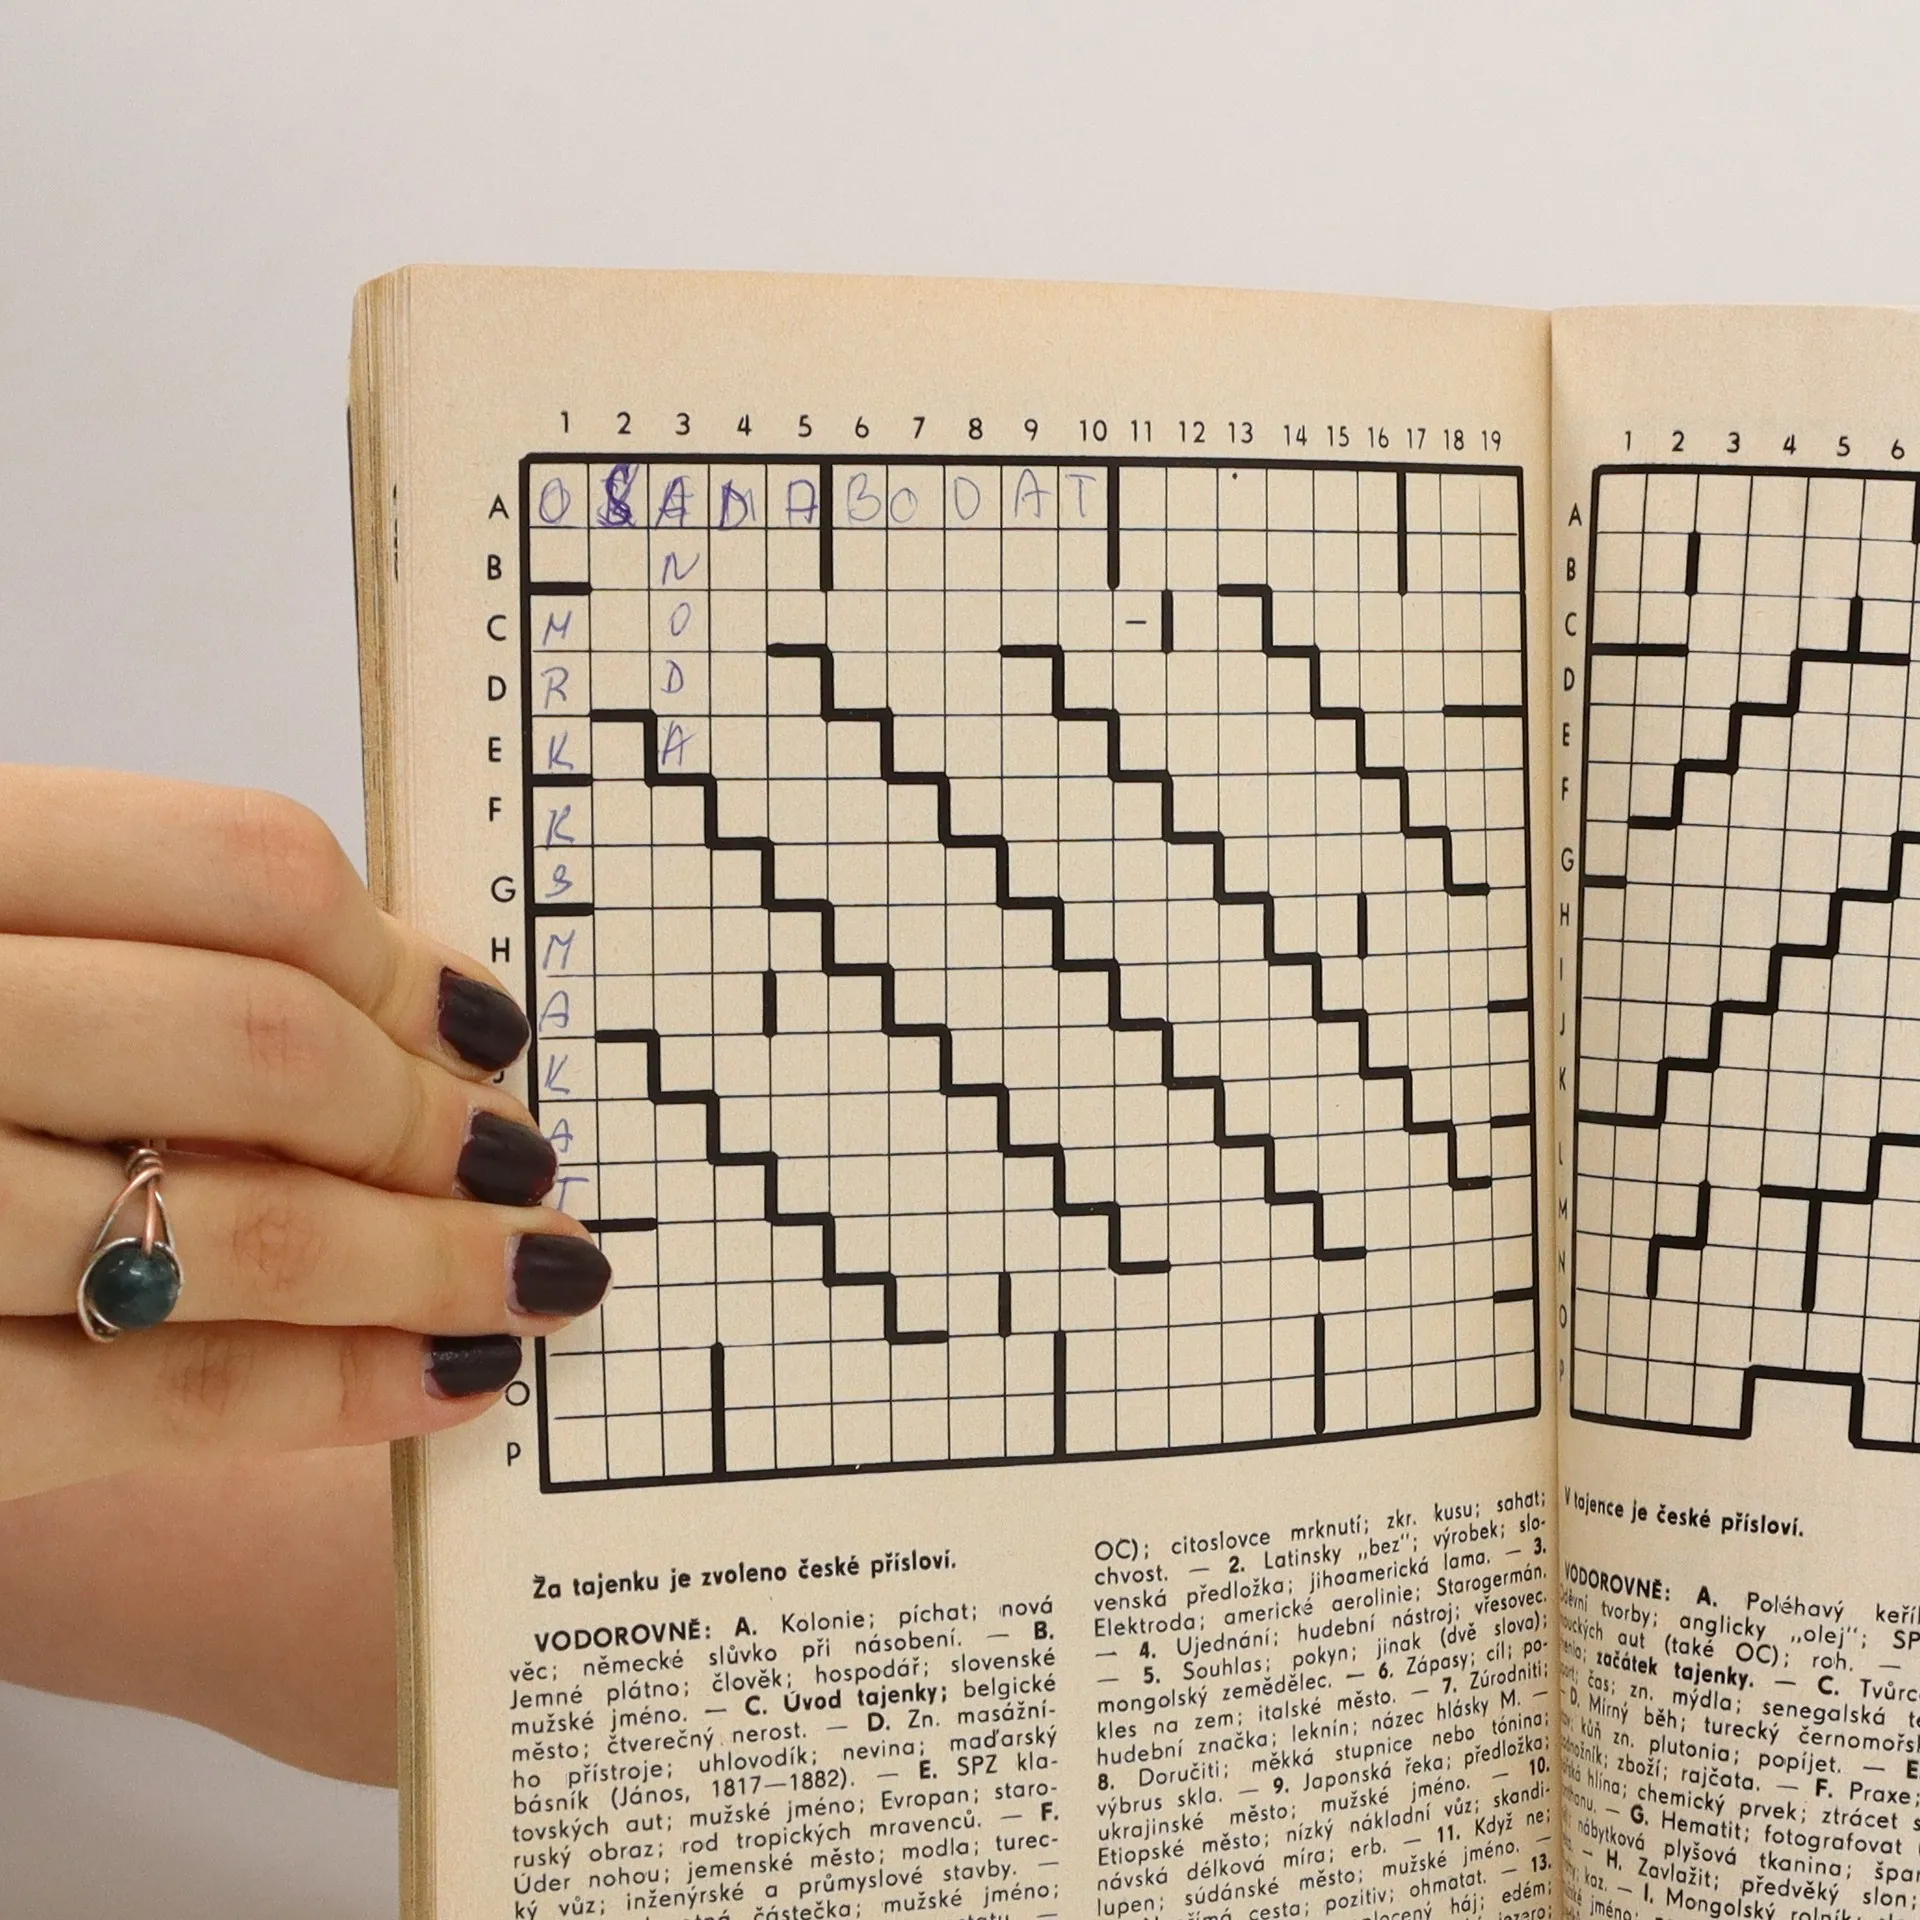 1 2 3 4 5 6 7 8 9 10 11 12 13 14 15 16 17 18 19
A O S A D A B O D A T
B N
C M O –
D R D
E K A
F K
G S
H M
A
K
A
T
O
P
Za tajenku je zvoleno české přísloví.
VODOROVNĚ: A. Kolonie; píchat; nová
věc; německé slůvko při násobení. — B.
Jemné plátno; člověk; hospodář; slovenské
mužské jméno. — C. Úvod tajenky; belgické
město; čtverečný nerost. — D. Zn. masážní-
ho přístroje; uhlovodík; nevina; maďarský
básník (János, 1817—1882). — E. SPZ kla-
tovských aut; mužské jméno; Evropan; staro-
ruský obraz; rod tropických mravenců. — F.
Úder nohou; jemenské město; modla; turec-
ký vůz; inženýrské a průmyslové stavby. —
částečka; mužské jméno;
OC); citoslovce mrknutí; zkr. kusu; sahat;
chvost. — 2. Latinsky „bez“; výrobek; slo-
venská předložka; jihoamerická lama. — 3.
Elektroda; americké aerolinie; Starogermán.
— 4. Ujednání; hudební nástroj; vřesovec.
— 5. Souhlas; pokyn; jinak (dvě slova);
mongolský zemědělec. — 6. Zápasy; cíl; po-
kles na zem; italské město. — 7. Zúrodniti;
hudební značka; leknín; název hlásky M. —
8. Doručiti; měkká stupnice nebo tónina;
výbrus skla. — 9. Japonská řeka; předložka;
ukrajinské město; mužské jméno. — 10.
Etiopské město; nízký nákladní vůz; skandi-
návská délková míra; erb. — 11. Když ne;
lupen; súdánské město; mužské jméno. —
cesta; pozitiv; ohmatat. — 13.
háj; edém;
1 2 3 4 5 6
A
B
C
D
E
F
G
H
I
J
K
L
M
N
O
P
V tajence je české přísloví.
VODOROVNĚ: A. Poléhavý
tvorby; anglicky „olej“; SP
aut (také OC); roh. —
začátek tajenky. — C.
čas; zn. mýdla; senegalská
— D. Mírný běh; turecký
kůň zn. plutonia; popíjet. — E.
zboží; rajčata. — F. Praxe;
hlína; chemický prvek; ztrácet
— G. Hematit; fotografovat
nábytková plyšová tkanina;
— H. Zavlažit; předvěký slon;
— I. Mongolský